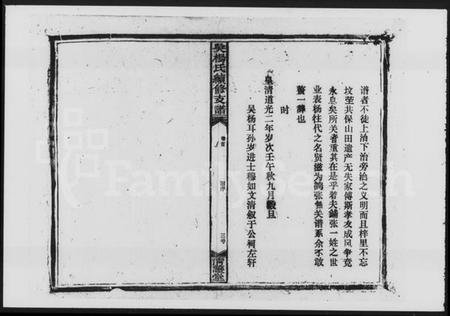 谱者不徒上治下治旁治之义明而且梓里不忘
坟茔共保山田遗产无失家传斯孝友成风争竞
永息矣所关者重其在是乎若夫铺张一姓之世
业表杨往代之名贤谥为鸿张无关谱系余不敢
赘一辞也
时
皇清道光二年岁次壬午秋九月穀旦
吴杨耳孙岁进士穆如文清叙于公祠左轩
吴杨氏续修支谱
卷首